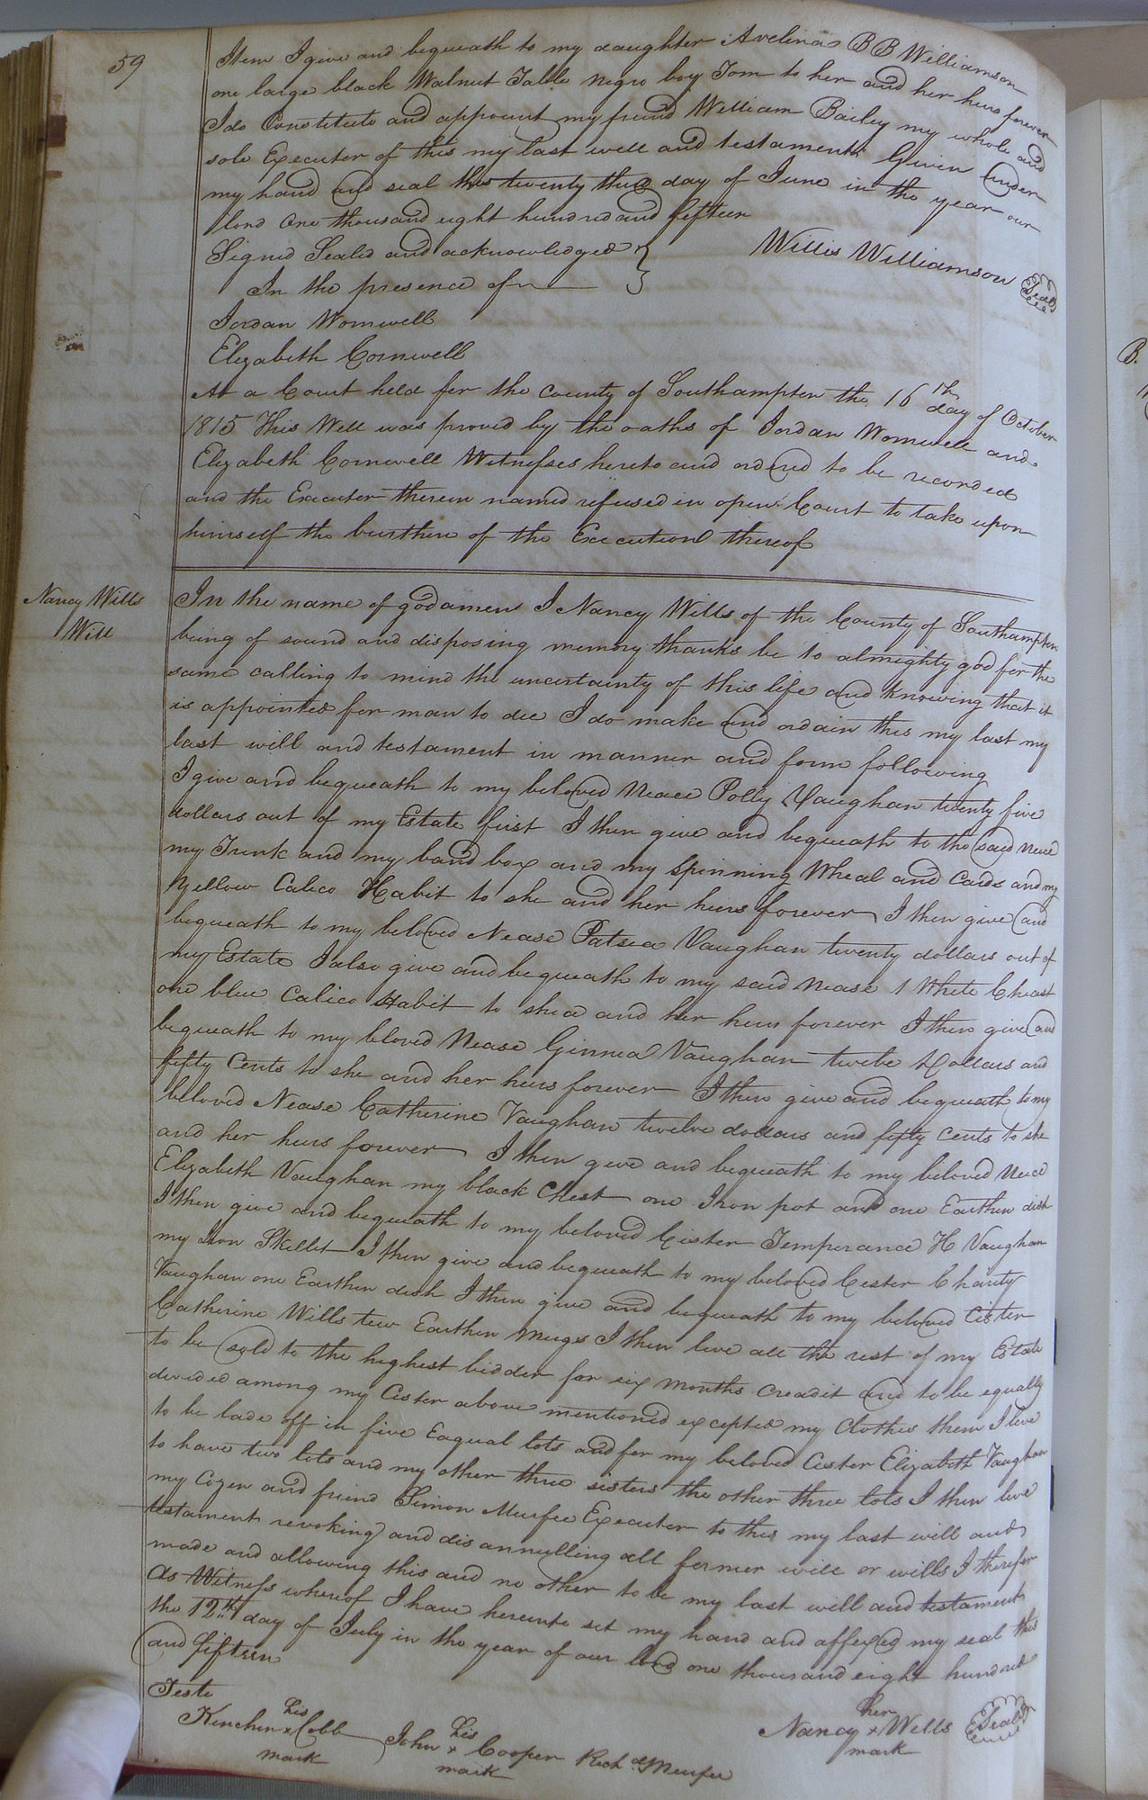 59
Item I give and bequeath to my daughter Avelina B B Williamson
one large black Walnut Table negro boy Tom to her and her heirs forever
I do Constitute and appoint my friend William Bailey my whole and
sole Executor of this my last will and testament Given under
my hand and seal this twenty third day of June in the year our
lord One thousand eight hundred and fifteen
Signed Sealed and acknowledged
In the presence of
Willis Williamson Seal
Jordan Womwell
Elizabeth Cornwell
At a Court held for the County of Southampton the 16th day of October
1815 This Will was proved by the oaths of Jordan Womwell and
Elizabeth Cornwell Witnesses hereto and ordered to be recorded
and the Executor therein named refused in open Court to take upon
himself the burthen of the Execution thereof
Nancy Wills
Will
In the name of god amen I Nancy Wills of the County of Southampton
being of sound and disposing memory thanks be to almighty god for the
same calling to mind the uncertainty of this life and knowing that it
is appointed for man to die I do make and ordain this my last my
last will and testament in manner and form following
I give and bequeath to my beloved Neace Polly Vaughan twenty five
dollars out of my Estate first I then give and bequeath to the said neice
my Trunk and my band box and my spinning Wheal and Cards and my
Yellow Calico Habit to she and her heirs forever I then give and
bequeath to my beloved Nease Patsea Vaughan twenty dollars out of
my Estate I also give and bequeath to my said Nease 1 White Cheast
one blue Calico Habit to shea and her heirs forever I then give and
bequeath to my bloved Nease Ginnea Vaughan twelve Dollars and
fifty Cents to she and her heirs forever I then give and bequeath to my
beloved Nease Catherine Vaughan twelve dollars and fifty Cents to she
and her heirs forever I then give and bequeath to my beloved neice
Elizabeth Vaughan my black Chest one Iron pot and one Earthen dish
I then give and bequeath to my beloved Cister Temperance H Vaughan
my Iron Skillet I then give and bequeath to my beloved Cester Charity
Vaughan one Earthen dish I then give and bequeath to my beloved Cister
Catherine Wills tew Earthen Muggs I then leve all the rest of my Estate
to be sold to the highest bidder for six months creadit and to be equally
devided among my Cister above mentioned excepted my Clothes them I leve
to be lade off in five Eaqual lots and for my beloved Cister Elizabeth Vaughan
to have two lots and my other three sisters the other three lots I then leve
my Cozen and friend Simon Murfee Executor to this my last will and
testament revoking and disannulling all former will or wills I therefor
made and allowing this and no other to be my last will and testament
As Witness whereof I have hereunto set my hand and affexed my seal this
the 12th day of July in the year of our lord one thousand eight hundred
and fifteen
Teste
Kinchen his x mark Cobb
John his x mark Cooper
Richd Murfee
Nancy her x mark Wells Seal